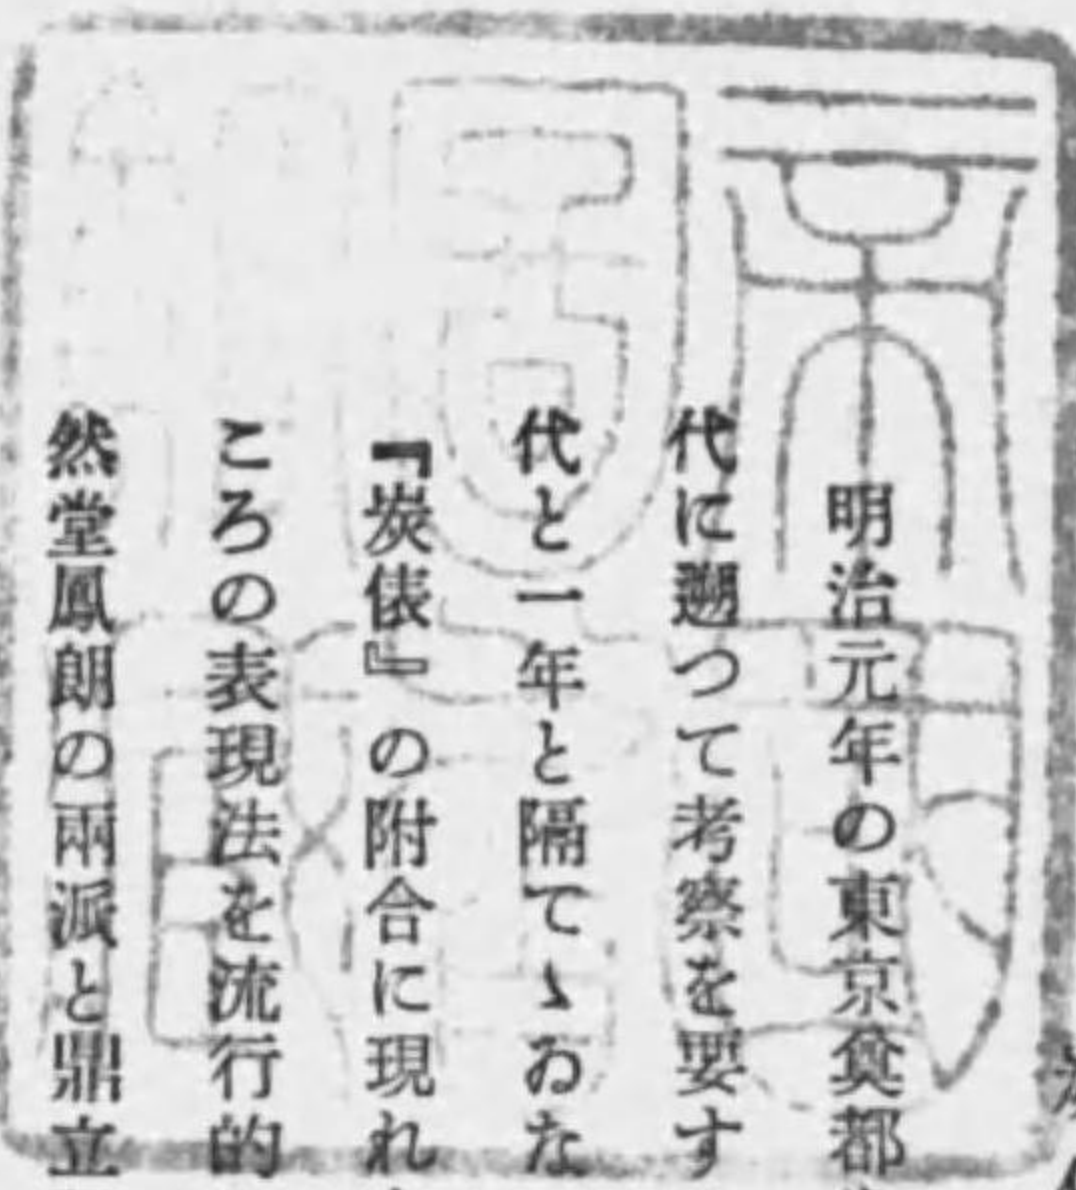 明治元年の東京奠都
代に遡つて考察を要す
代と一年と隔てゝゐな
『炭俵』の附合に現れ
ころの表現法を流行的
然堂鳳朗の兩派と鼎立